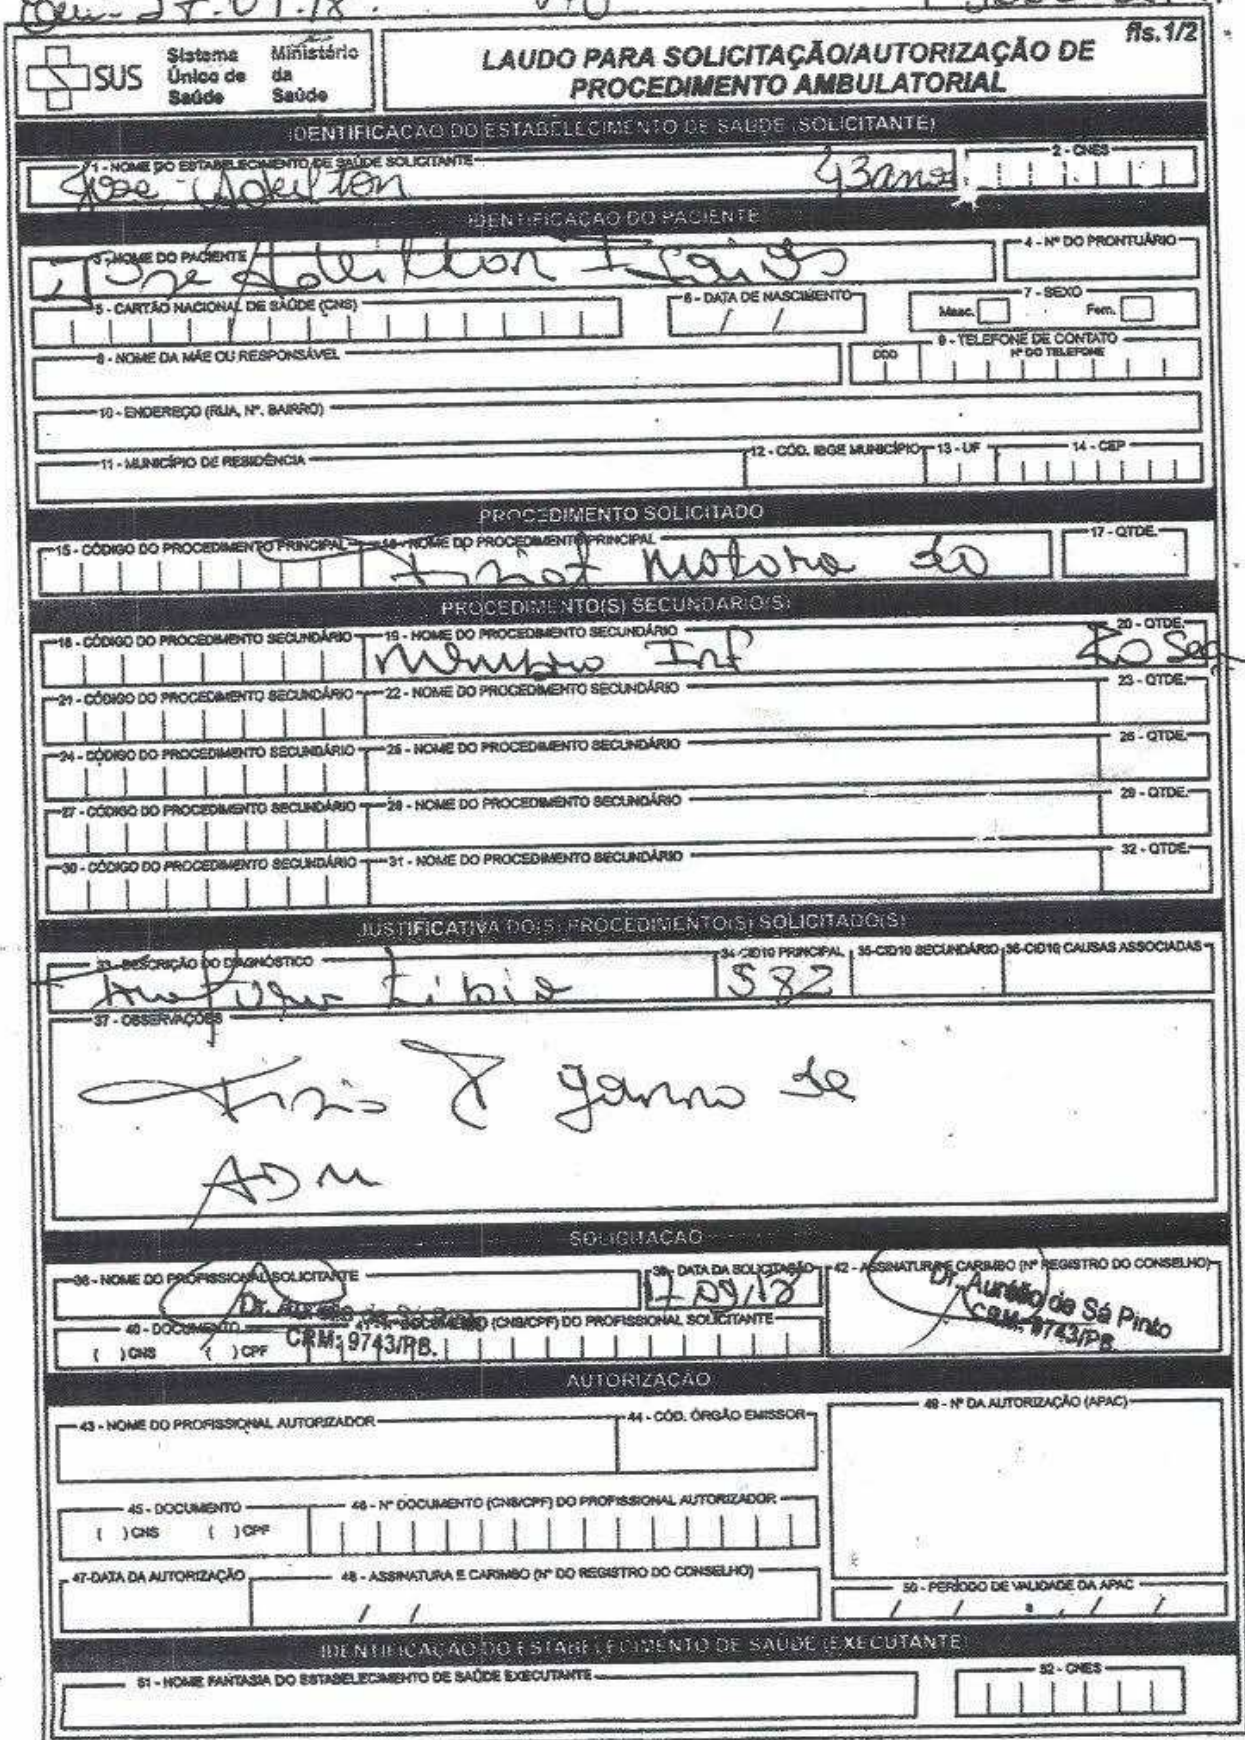 fls. 1/2
SUS Sistema Único de Saúde Ministério da Saúde
LAUDO PARA SOLICITAÇÃO/AUTORIZAÇÃO DE
PROCEDIMENTO AMBULATORIAL
IDENTIFICAÇÃO DO ESTABELECIMENTO DE SAÚDE (SOLICITANTE)
1 - NOME DO ESTABELECIMENTO DE SAÚDE SOLICITANTE 2 - CNES
Jose Adeilton 43 anos
IDENTIFICAÇÃO DO PACIENTE
3 - NOME DO PACIENTE 4 - Nº DO PRONTUÁRIO
Jose Adeilton
5 - CARTÃO NACIONAL DE SAÚDE (CNS) 6 - DATA DE NASCIMENTO 7 - SEXO
/ / Masc. Fem.
8 - NOME DA MÃE OU RESPONSÁVEL 9 - TELEFONE DE CONTATO
DDD Nº DO TELEFONE
10 - ENDEREÇO (RUA, Nº, BAIRRO)
11 - MUNICÍPIO DE RESIDÊNCIA 12 - CÓD. IBGE MUNICÍPIO 13 - UF 14 - CEP
PROCEDIMENTO SOLICITADO
15 - CÓDIGO DO PROCEDIMENTO PRINCIPAL 16 - NOME DO PROCEDIMENTO PRINCIPAL 17 - QTDE.
Motora do
PROCEDIMENTO(S) SECUNDÁRIO(S)
18 - CÓDIGO DO PROCEDIMENTO SECUNDÁRIO 19 - NOME DO PROCEDIMENTO SECUNDÁRIO 20 - QTDE.
Membro Inf
21 - CÓDIGO DO PROCEDIMENTO SECUNDÁRIO 22 - NOME DO PROCEDIMENTO SECUNDÁRIO 23 - QTDE.
24 - CÓDIGO DO PROCEDIMENTO SECUNDÁRIO 25 - NOME DO PROCEDIMENTO SECUNDÁRIO 26 - QTDE.
27 - CÓDIGO DO PROCEDIMENTO SECUNDÁRIO 28 - NOME DO PROCEDIMENTO SECUNDÁRIO 29 - QTDE.
30 - CÓDIGO DO PROCEDIMENTO SECUNDÁRIO 31 - NOME DO PROCEDIMENTO SECUNDÁRIO 32 - QTDE.
JUSTIFICATIVA DO(S) PROCEDIMENTO(S) SOLICITADO(S)
33 - DESCRIÇÃO DO DIAGNÓSTICO 34 - CID10 PRINCIPAL 35 - CID10 SECUNDÁRIO 36 - CID10 CAUSAS ASSOCIADAS
Fratura Tibia S82
37 - OBSERVAÇÕES
Fisio P/ ganho de
ADM
SOLICITAÇÃO
38 - NOME DO PROFISSIONAL SOLICITANTE 39 - DATA DA SOLICITAÇÃO 42 - ASSINATURA E CARIMBO (Nº REGISTRO DO CONSELHO)
Dr. Aurélio de Sá Pinto
CRM: 9743/PB
40 - DOCUMENTO 41 - Nº DOCUMENTO (CNS/CPF) DO PROFISSIONAL SOLICITANTE
( ) CNS ( ) CPF CRM: 9743/PB.
AUTORIZAÇÃO
43 - NOME DO PROFISSIONAL AUTORIZADOR 44 - CÓD. ÓRGÃO EMISSOR 49 - Nº DA AUTORIZAÇÃO (APAC)
45 - DOCUMENTO 46 - Nº DOCUMENTO (CNS/CPF) DO PROFISSIONAL AUTORIZADOR
( ) CNS ( ) CPF
47-DATA DA AUTORIZAÇÃO 48 - ASSINATURA E CARIMBO (Nº DO REGISTRO DO CONSELHO) 50 - PERÍODO DE VALIDADE DA APAC
/ / / / a / /
IDENTIFICAÇÃO DO ESTABELECIMENTO DE SAÚDE (EXECUTANTE)
51 - NOME FANTASIA DO ESTABELECIMENTO DE SAÚDE EXECUTANTE 52 - CNES